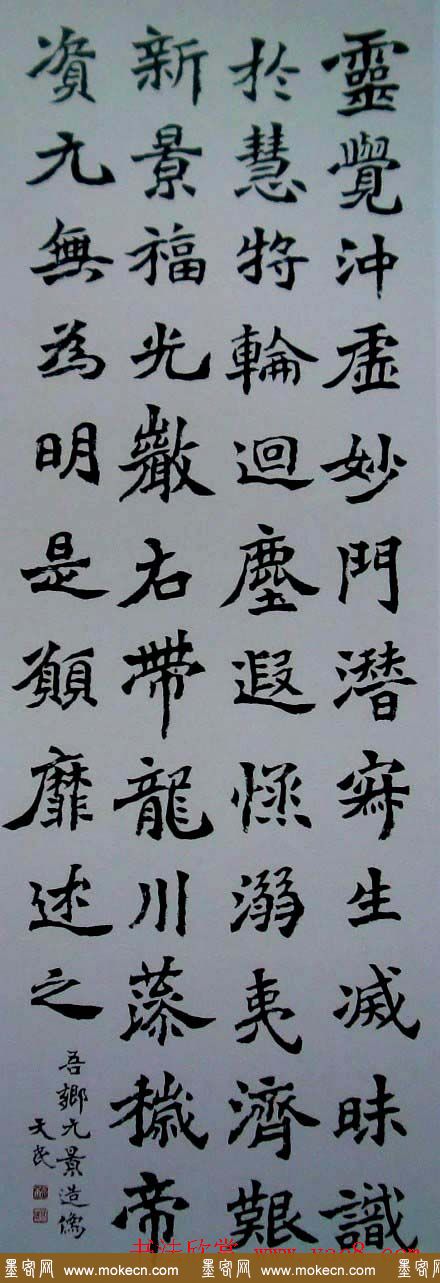 靈覺沖虛妙門潛寂生滅昧識
於慧將輪迴塵遐愻溺夷濟艱
新景福光巖右帶龍川蔭𥡜帝
資九無為明是願靡述之
吾鄉元景造像
天民
书法欣赏 www.yac8.com
墨客网 www.mokecn.com 墨客网 www.mokecn.com 墨客网